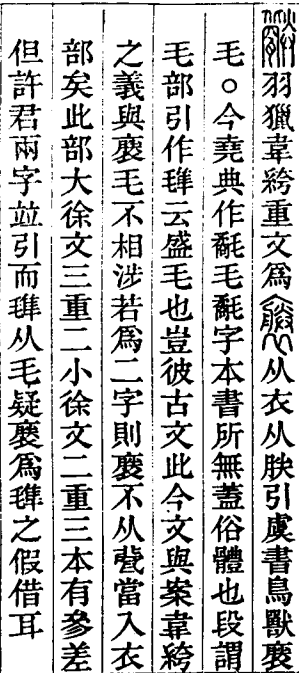 羽獵韋絝重文爲从衣从朕引虞書鳥獸
毛○今堯典作氄毛氄字本書所無蓋俗體也段謂
毛部引作㲝云盛毛也豈彼古文此今文與案韋絝
之義與毛不相涉若爲二字則不从㼱當入衣
部矣此部大徐文三重二小徐文二重三本有參差
但許君兩字竝引而㲝从毛疑爲㲝之假借耳